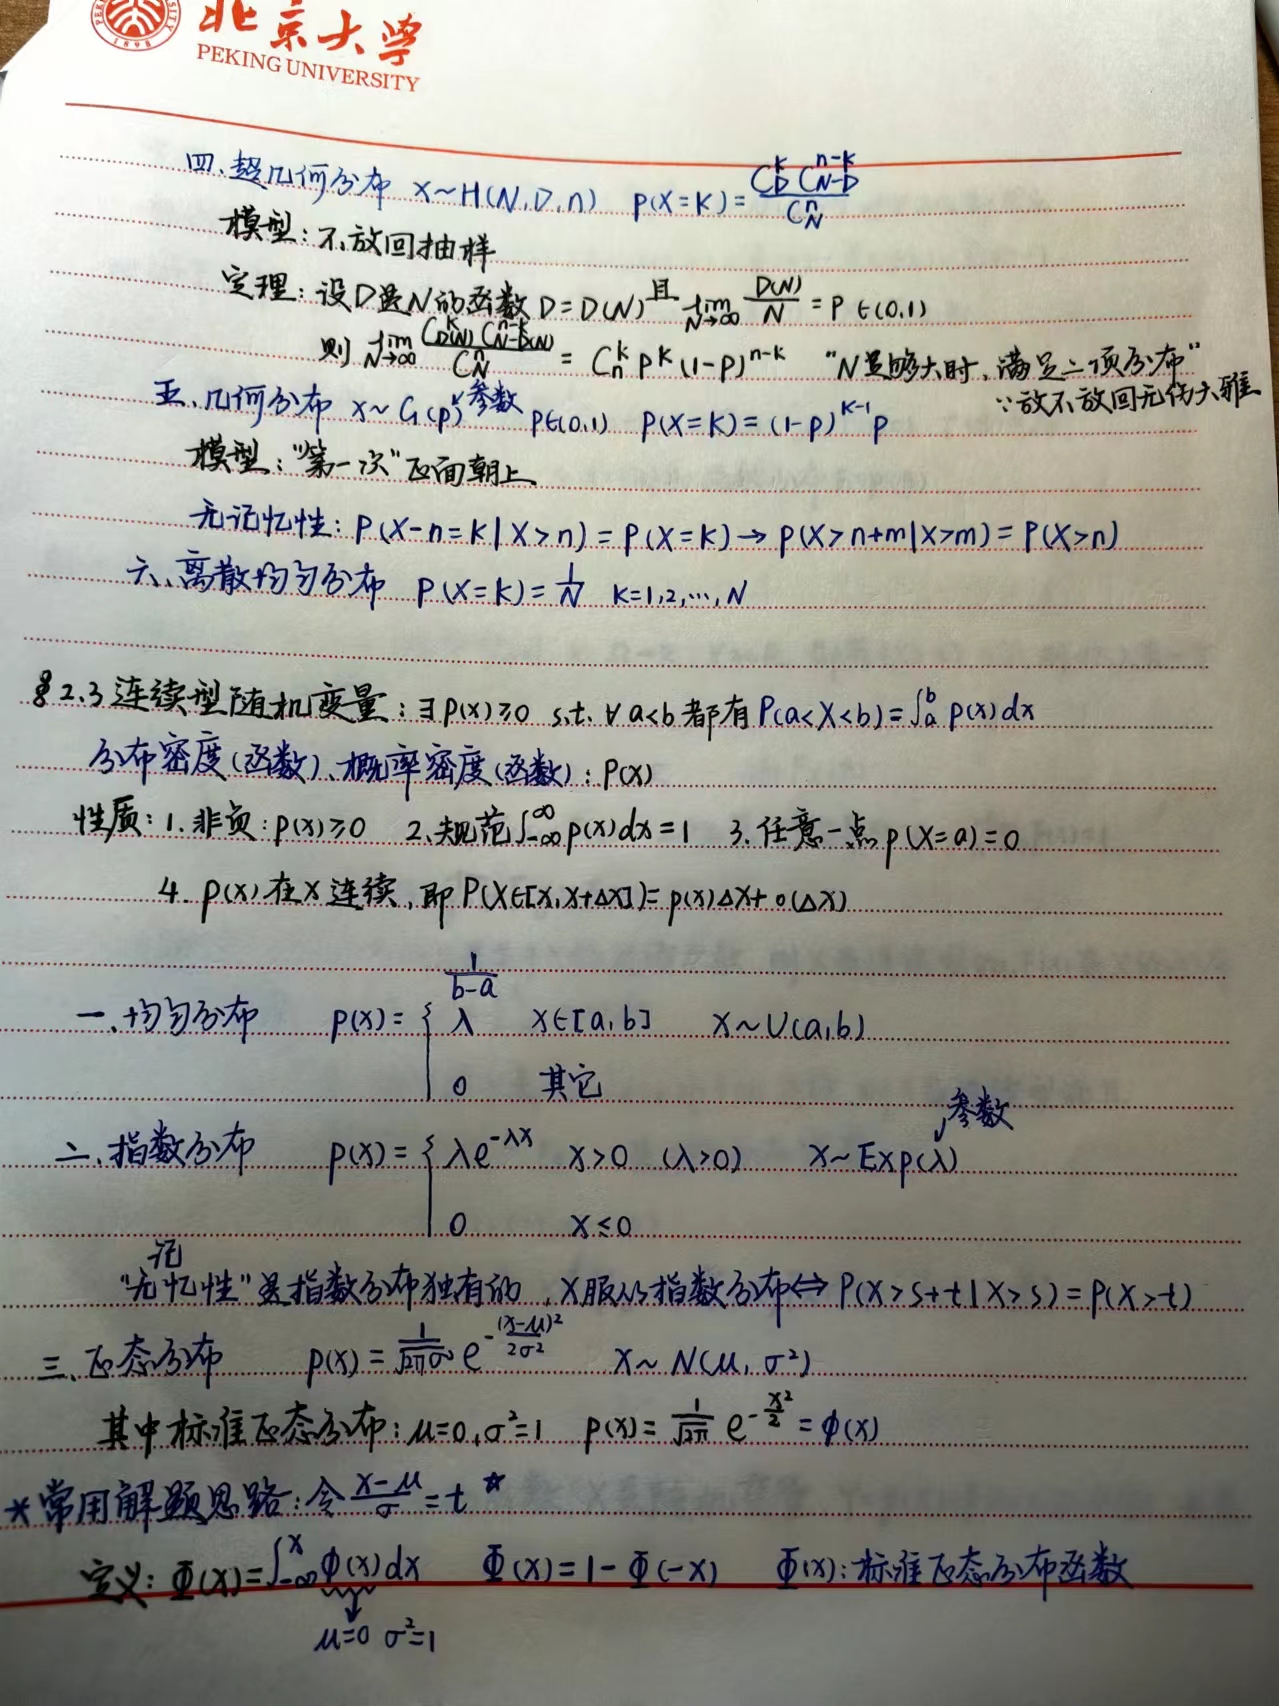 北京大学
PEKING UNIVERSITY
1898
四、超几何分布 X~H(N,D,n) P(X=K)=\frac{C_D^k C_{N-D}^{n-k}}{C_N^n}
模型:不放回抽样
定理:设D是N的函数D=D(N)且 \lim_{N→∞} \frac{D(N)}{N}=P∈(0,1)
则 \lim_{N→∞} \frac{C_{D(N)}^k C_{N-D(N)}^{n-k}}{C_N^n} = C_n^k P^k (1-P)^{n-k} "N足够大时,满足二项分布"
∵放不放回无伤大雅
五、几何分布 X~G(p) 参数 p∈(0,1) P(X=K)=(1-p)^{K-1}p
模型:"第一次"正面朝上
无记忆性:P(X-n=K|X>n)=P(X=K)→P(X>n+m|X>m)=P(X>n)
六、离散均匀分布 P(X=K)=\frac{1}{N} K=1,2,…,N
§2.3连续型随机变量:∃p(x)≥0 s.t.∀a<b都有P(a<X<b)=∫_a^b p(x)dx
分布密度(函数)、概率密度(函数):P(x)
性质:1.非负:p(x)≥0 2.规范∫_{-∞}^{∞}p(x)dx=1 3.任意一点p(X=a)=0
4.p(x)在x连续,即P(X∈[x,x+Δx])=p(x)Δx+o(Δx)
\frac{1}{b-a}
一、均匀分布 p(x)={ λ x∈[a,b] X~U(a,b)
0 其它
参数
二、指数分布 p(x)={ λe^{-λx} x>0 (λ>0) X~Exp(λ)
0 x≤0
"无记忆性"是指数分布独有的,X服从指数分布⇔P(X>s+t|X>s)=P(X>t)
三、正态分布 p(x)=\frac{1}{\sqrt{2π}σ}e^{-\frac{(x-μ)^2}{2σ^2}} X~N(μ,σ²)
其中标准正态分布:μ=0,σ²=1 p(x)=\frac{1}{\sqrt{2π}}e^{-\frac{x^2}{2}}=φ(x)
*常用解题思路:令\frac{x-μ}{σ}=t ☆
定义:Φ(x)=∫_{-∞}^x φ(x)dx Φ(x)=1-Φ(-x) Φ(x):标准正态分布函数
μ=0 σ²=1